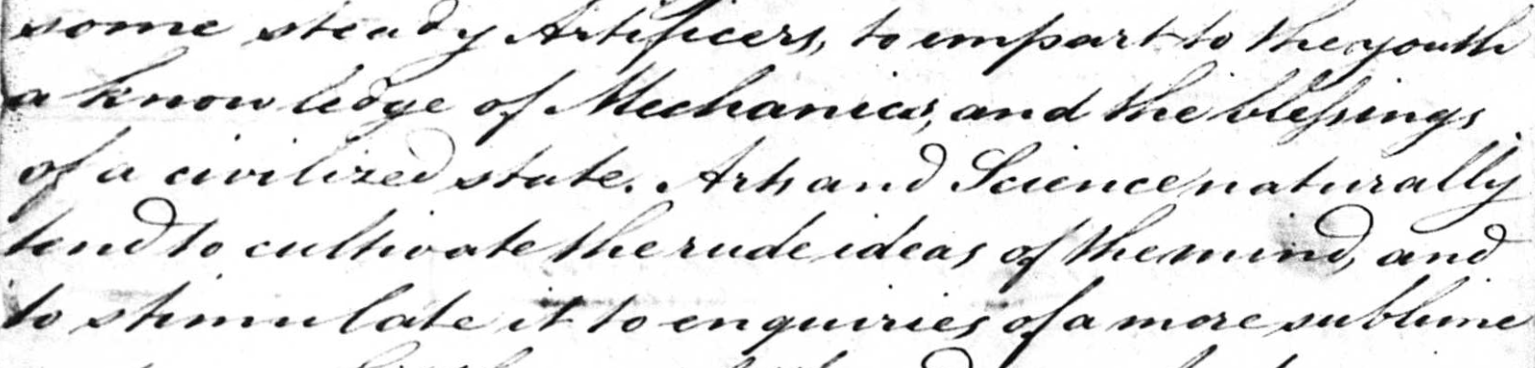 some steady Artificers, to impart to the youth
a knowledge of Mechanics, and the blessings
of a civilized state. Arts and Science naturally
tend to cultivate the rude ideas of the mind, and
to stimulate it to enquiries of a more sublime